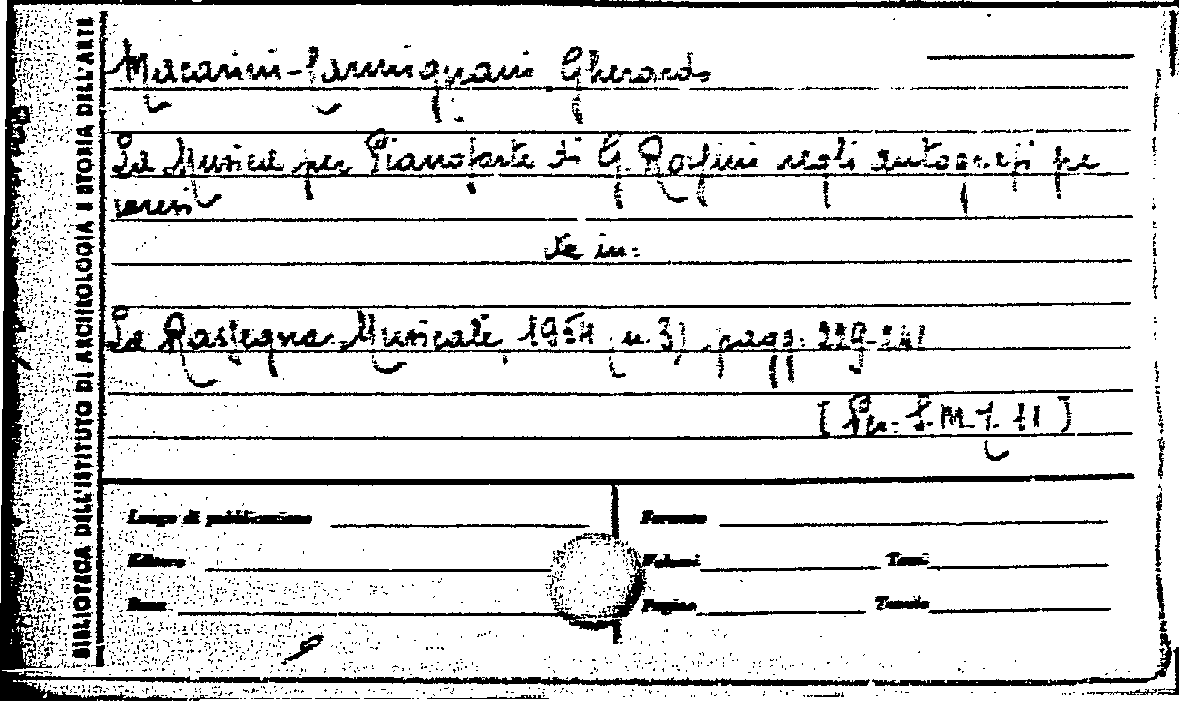 BIBLIOTECA DELL'ISTITUTO DI ARCHEOLOGIA E STORIA DELL'ARTE
Macarini-Carmignani Gherardo
La Musica per Pianoforte di G. Rossini negli autografi pe
saresi
Sta in:
La Rassegna Musicale 1954 n. 3, pagg. 229-241
[Per. I. M. 7. 11]
Luogo di pubblicazione
Formato
Editore
Volumi Tomi
Data
Pagine Tavole